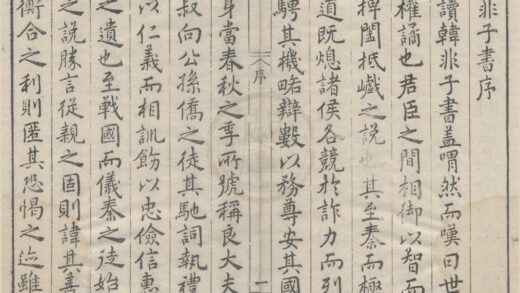 非子書序
讀韓非子書蓋喟然而嘆曰世
權譎也君臣之間相御以智而
捭闔抵巇之說也其至秦而極
道既熄諸侯各競於詐力而列
騁其機略辯數以務尊安其國
序 一
身當春秋之季所號稱良大夫
叔向公孫僑之徒其馳詞執禮
以仁義而相訓飭以忠儉信惠
之遺也至戰國而儀秦之徒始
之說勝言從親之固則諱其善
衡合之利則匿其恐愒之迹雖